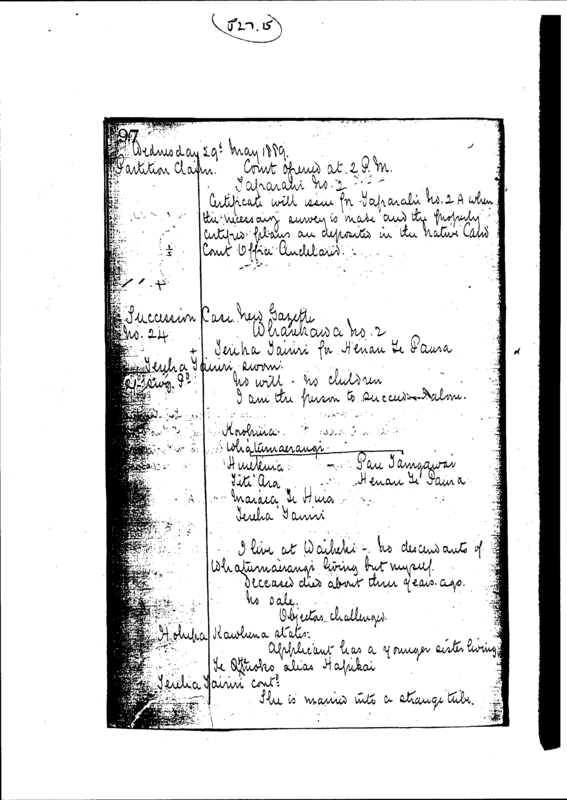 827.15
97
Wednesday 29th May 1889.
Partition Claim. Court opened at 2 P.M.
Taparahi No. 2
Certificate will issue for Taparahi No. 2 A when
the necessary survey is made and the properly
certified plans are deposited in the Native Land
Court Office Auckland.
Succession Case New Gazette
No. 24 Whaukawa No. 2
Teriha Tainui for Henau Te Paura
Teriha Tainui sworn:
No will - no children
I am the person to succeed alone.
Kowhina
Whatumaerangi
Huetenia - Pau Tamgawai
Titi Ara Henau Te Paura
Maraea Te Huia
Teriha Tainui
I live at Waiheki - no descendants of
Whatumaerangi living but myself.
Deceased died about three years ago.
No sale.
Objectors challenged.
Kawhena states:
Applicant has a younger sister living
Te alias Hapikai
Teriha Tainui contd
She is married into a strange tribe.